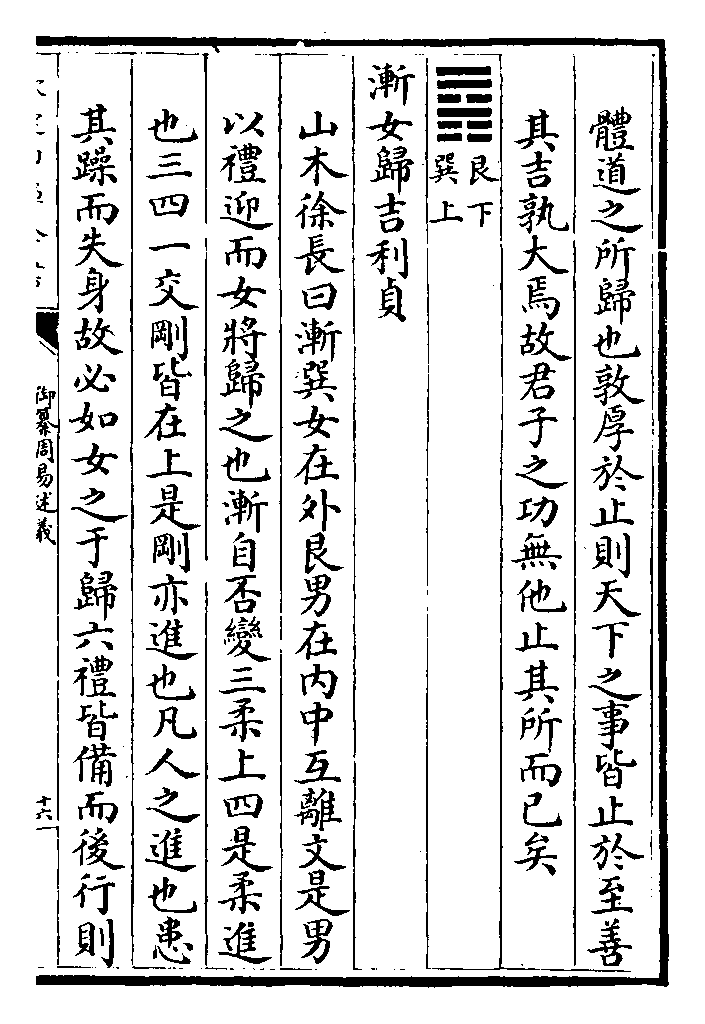 體道之所歸也敦厚於止則天下之事皆止於至善
其吉孰大焉故君子之功無他止其所而已矣
䷴艮下
巽上
漸女歸吉利貞
山木徐長曰漸巽女在外艮男在内中互離文是男
以禮迎而女將歸之也漸自否變三柔上四是柔進
也三四一交剛皆在上是剛亦進也凡人之進也患
其躁而失身故必如女之于歸六禮皆備而後行則
御纂周易述義
十六